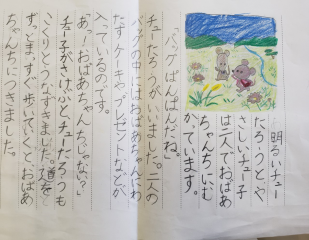 明るいチュー
たろうとや
さしいチュー子
は二人でおばあ
ちゃんちにむ
かっています。
「バッグぱんぱんだね。」
チューたろうがいいました。二人の
バッグの中にはおばあちゃんにわ
たすケーキや、プレゼントなどが
入っているのです。
「あっ、おばあちゃんちじゃない?」
チュー子がさけぶと、チューたろうも
こくりとうなずきました。道を
ずっとまっすぐ歩いていくと、おばあ
ちゃんちにつきました。